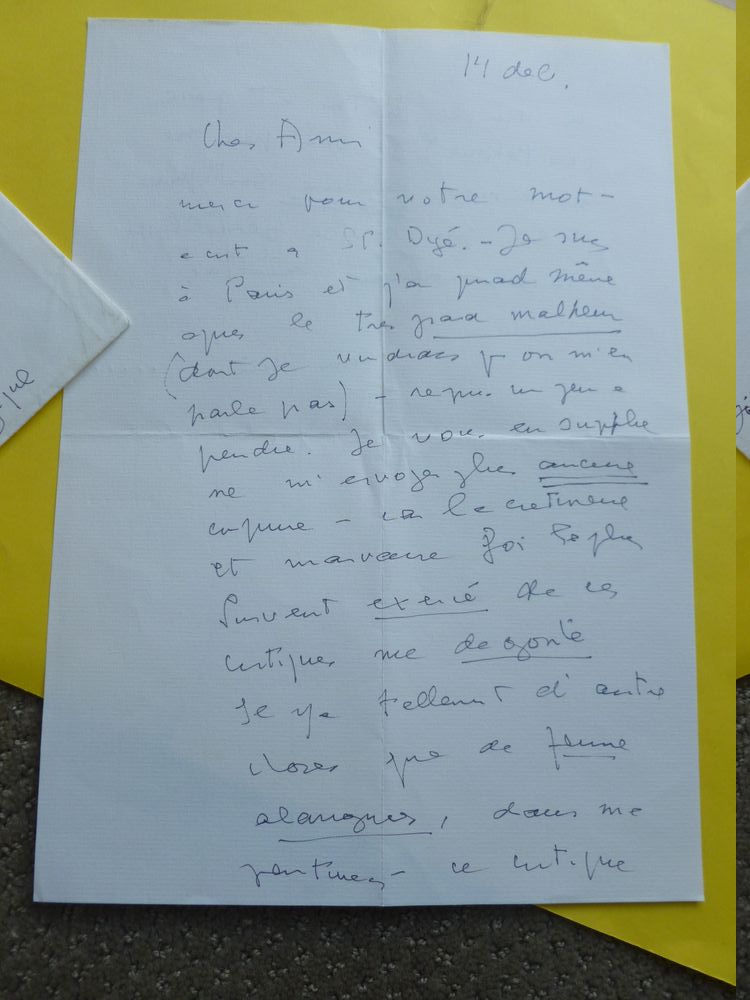 14 dec.
Cher Ami
merci pour votre mot -
ecrit a St. Dyé. - Je suis
à Paris et j'ai quand même
apres le tres grand malheur
(dont je voudrais qu'on m'en
parle pas) - repris un peu a
peindre. Je vous en supplie
ne m'envoyez plus aucune
coupure - car la cretinerie
et mauvaise foi le plus
souvent exercé de ces
critiques me degoute
Je vx tellement d'autre
choses que de femme
alangues, dans me
peintures - ce critique